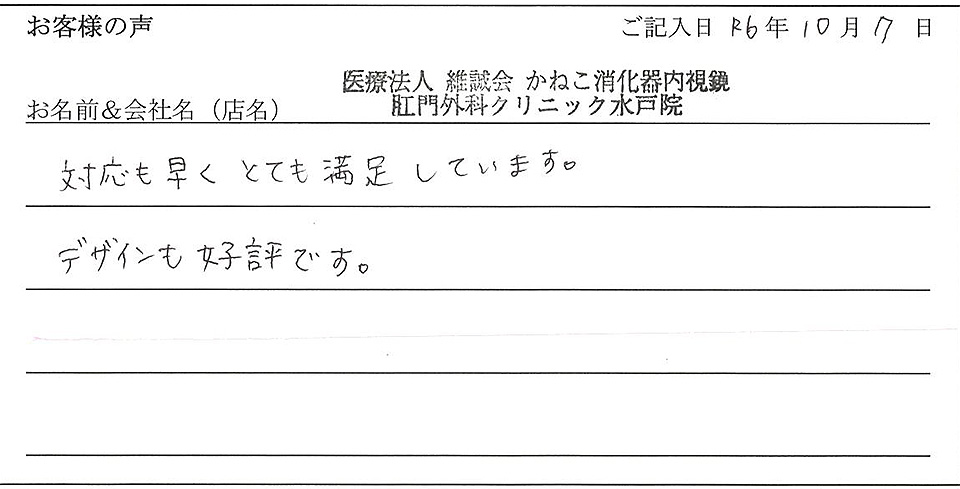 お客様の声
ご記入日 R6年 10月 7日
医療法人 維誠会 かねこ消化器内視鏡
肛門外科クリニック水戸院
お名前＆会社名（店名）
対応も早く とても満足しています。
デザインも好評です。